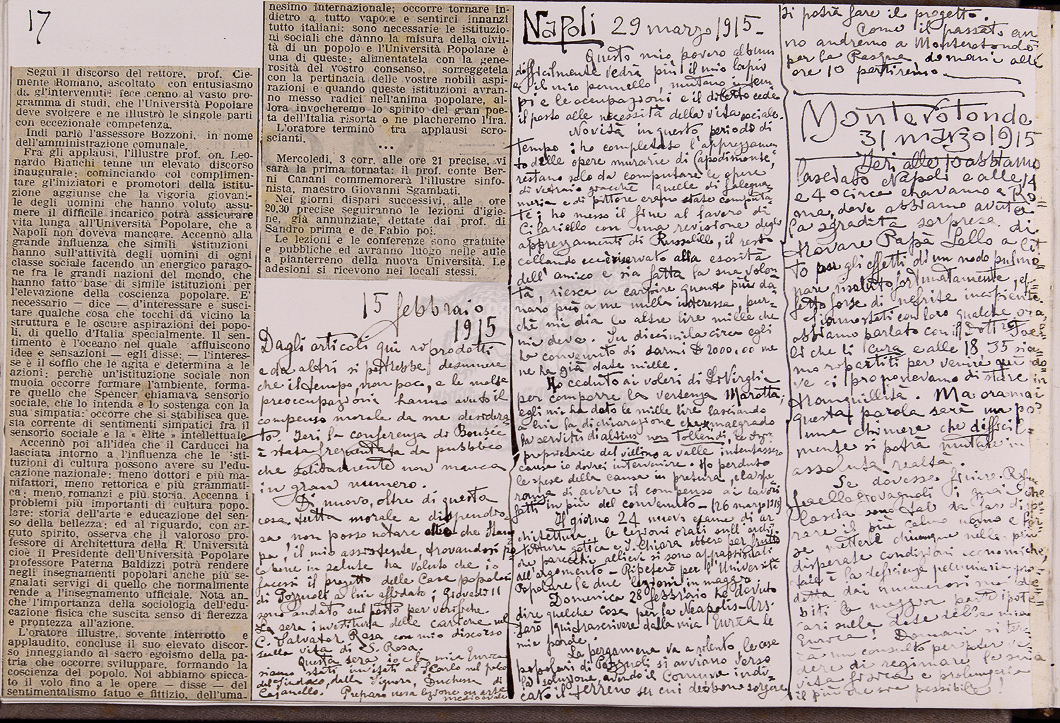 17
Seguì il discorso del rettore, prof. Cle-
mente Romano, ascoltato con entusiasmo
da gl'intervenuti: fece cenno al vasto pro-
gramma di studi, che l'Università Popolare
deve svolgere e ne illustrò le singole parti
con eccezionale competenza.
Indi parlò l'assessore Bozzoni, in nome
dell'amministrazione comunale.
Fra gli applausi, l'illustre prof. on. Leo-
nardo Bianchi tenne un elevato discorso
inaugurale; cominciando col complimen-
tare gl'iniziatori e promotori della istitu-
zione aggiunse che la vigoria giovani-
le degli uomini che hanno voluto assu-
mere il difficile incarico potrà assicurare
vita lunga all'Università Popolare, che a
Napoli non doveva mancare. Accennò alla
grande influenza che simili istituzioni
hanno sull'attività degli uomini di ogni
classe sociale facendo un energico parago-
ne fra le grandi nazioni del mondo, che
hanno fatto base di simile istituzioni per
l'elevazione della coscienza popolare. E'
necessario — dice — d'interessare e susci-
tare qualche cosa che tocchi da vicino la
struttura e le oscure aspirazioni dei popo-
li, di quello d'Italia specialmente. Il sen-
timento è l'oceano nel quale affluiscono
idee e sensazioni — egli disse; — l'interes-
se è il soffio che le agita e determina a le
azioni; perchè un'istituzione sociale non
muoia occorre formare l'ambiente, forma-
re quello che Spencer chiamava sensorio
sociale, che lo intenda e lo sostenga con la
sua simpatia: occorre che si stabilisca que-
sta corrente di sentimenti simpatici fra il
sensorio sociale e la « élite » intellettuale.
Accennò poi all'idea che il Carducci ha
lasciata intorno a l'influenza che le isti-
tuzioni di cultura possono avere su l'edu-
cazione nazionale: meno dottori e più ma-
nifattori, meno rettorica e più grammati-
ca; meno romanzi e più storia. Accenna i
problemi più importanti di cultura popo-
lare: storia dell'arte e educazione del sen-
so della bellezza; ed al riguardo, con ar-
guto spirito, osserva che il valoroso pro-
fessore di Architettura della R. Università
cioè il Presidente dell'Università Popolare
professore Paterna Baldizzi potrà rendere
negli insegnamenti popolari anche più se-
gnalati servigi di quello che normalmente
rende a l'insegnamento ufficiale. Nota an-
che l'importanza della sociologia dell'edu-
cazione fisica che suscita senso di fierezza
e prontezza all'azione.
L'oratore illustre, sovente interrotto e
applaudito, concluse il suo elevato discor-
so inneggiando al sacro egoismo della pa-
tria che occorre sviluppare, formando la
coscienza del popolo. Noi abbiamo spicca-
to il volo fino a le opere — disse — del
sentimentalismo fatuo e fittizio, dell'uma-
nesimo internazionale; occorre tornare in-
dietro a tutto vapore e sentirci innanzi
tutto italiani: sono necessarie le istituzio-
ni sociali che dànno la misura della civil-
tà di un popolo e l'Università Popolare è
una di queste; alimentatela con la gene-
rosità del vostro consenso, sorreggetela
con la pertinacia delle vostre nobili aspi-
razioni e quando queste istituzioni avran-
no messo radici nell'anima popolare, al-
lora invocheremo lo spirito del gran poe-
ta dell'Italia risorta o ne placheremo l'ira.
L'oratore terminò tra applausi scro-
scianti.
•••
Mercoledì, 3 corr. alle ore 21 precise, vi
sarà la prima tornata; il prof. conte Ber-
ni Canani commemorerà l'illustre sinfo-
nista, maestro Giovanni Sgambati.
Nei giorni dispari successivi, alle ore
20,30 precise seguiranno le lezioni d'igie-
ne, già annunziate, dettate dai prof. di
Sandro prima e de Fabio poi.
Le lezioni e le conferenze sono gratuite
e pubbliche ed avranno luogo nelle aule
a pianterreno della nuova Università. Le
adesioni si ricevono nei locali stessi.
15 febbraio
1915
Dagli articoli qui riprodotti
e da altri si potrebbe desumere
che il tempo, non poco, e le molte
preoccupazioni hanno avuto il
compenso morale da me desidera-
to. Ieri la conferenza di
è stata frequentata da pubblico
che solitamente non manca
in gran numero.
Di nuovo, oltre di questa
cosa detta morale e dispendio-
sa non posso notare che
il mio assistente, trovandosi po-
co bene in salute ha voluto che io
facessi il progetto delle Case popolari
di Pozzuoli a lui affidato; Giovedì 11
sono andato sul posto per verifiche.
La sera investitura delle cariche nel
C. Salvator Rosa con mio discorso
sulla vita di S. Rosa.
Questa sera io e la mia Enrica
siamo stati invitati al S. Carlo nel palco
del Sindaco, della Signora, Duchessa di
Casanello. Preparo una lezione on arte
medioevale
Napoli 29 marzo 1915-
Questo mio povero album
difficilmente vedrà più il mio lapis
e il mio pennello; mutano i tem-
pi e le occupazioni e il diletto cede
il posto alle necessità della vita sociale.
Novità in questo periodo di
tempo: ho completato l'apprezzamen-
to delle opere murarie di Capodimonte,
restano solo da computare le opere
di vetraio giacchè quelle di falegna-
meria e di pittore erano state computa-
te; ho messo il fine al lavoro di
Cilariello con una revisione degli
apprezzamenti di Russolillo, il resto
collando è riservato alla esosità
dell'amico e sia fatta la sua volon-
tà, riesca a carpire quanto più da-
naro può a me nulla interessa, pur-
chè mi dia le altre lire mille che
mi deve. Su diecimila circa egli
ha convenuto di darmi £ 2000,00 ne
ne ha già date mille.
Ho ceduto ai voleri di Lo Virgilio
per comporre la vertenza Marotta,
egli mi ha dato le mille lire lasciando
a lui la dichiarazione che malgrado
la servitù di altius non Tollendi, se i
proprietari del villino a valle intentassero
causa io dovrei intervenire. Ho perduto
le spese della causa in pretura, e la spe-
ranza di avere il compenso ai lavori
fatti in più del convenuto - (26 marzo 1915)
Il giorno 24 nuovo esame di ar-
chitettura. Le lezioni orali sull'archi-
tettura gotica e S. Chiara ebbero per frutto
che parecchi allievi si sono appropriati
dell'argomento. Ripeterò per l'Università
Popolare le due lezioni in maggio.
Domenica 28 febbraio ho dovuto
dire qualche cosa per la Neapolis-Ars
farò quì trascrivere dalla mia Enrica le
mie parole.
La pergamena va a rilento, le case
popolari di Pozzuoli si avviano verso
la soluzione, avendo il Comune indi-
cato il terreno su cui debbono sorgere
si potrà fare il progetto.
Come il passato an-
no andremo a Monterotondo
per la Pasqua domani alle
ore 10 partiremo.
Monterotondo
31 marzo 1915
Ieri alle 10 abbiamo
lasciato Napoli e alle 14
e 40 circa eravamo a Ro-
ma, dove abbiamo avuto
la sgradita sorpresa di
trovare Papà Lello a let-
to per gli effetti di un nodo pulmo-
nare, risoluto fortunatamente, ef-
fetto forse di nefrite incipiente.
Ci siamo stati con loro qualche ora,
abbiamo parlato con il Dottore
che ti cura e alle 18,35 sia-
mo ripartiti per venire qui
ove ci proponevamo di stare
tranquilli. Ma oramai
questa parola sarà un po'
una chimera che difficil-
mente si potrà mutare in
assoluta realtà.
Se dovesse finire Raf-
faello Giovagnoli